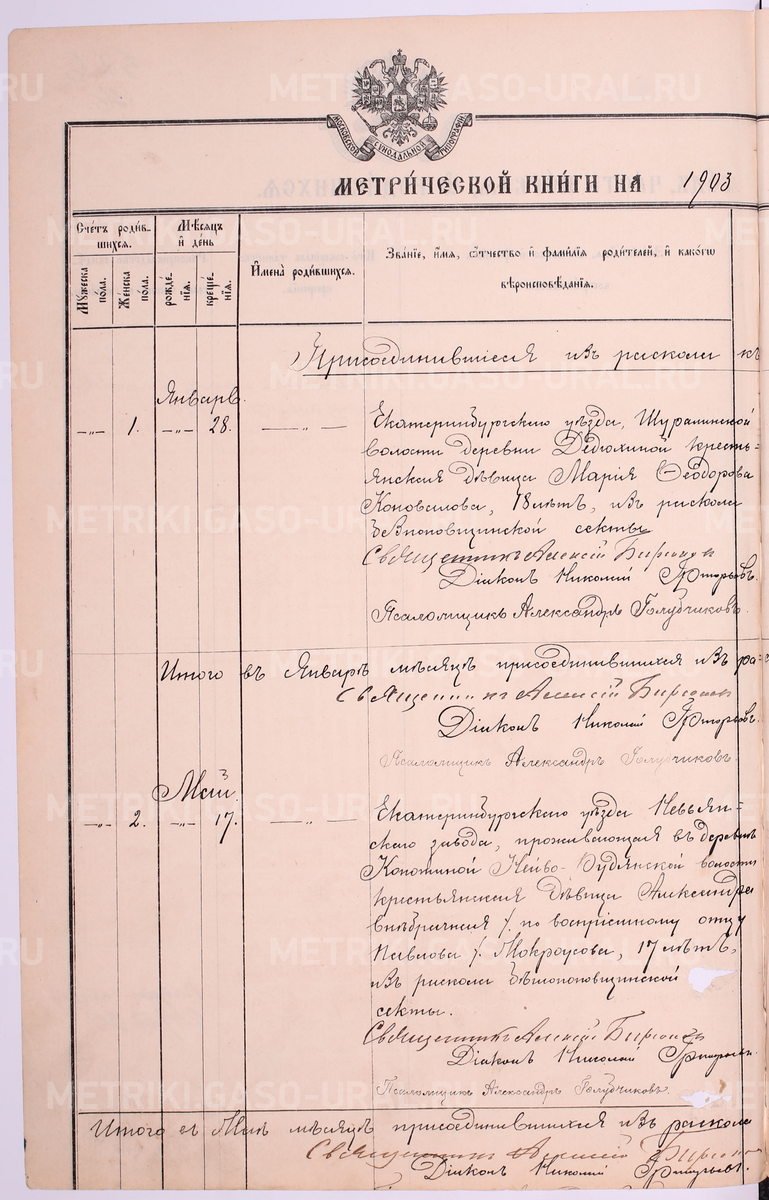 МОСКОВСКОЙ СѴНОДАЛЬНОЙ ТИПОГРАФІИ
МЕТРИ́ЧЕСКОЙ КНИ́ГИ НА 1903
Сче́тъ роди́в-
шихсѧ.
Мѣ́сѧцъ
и҆ де́нь
Му́жеска
по́ла.
Же́нска
по́ла.
рожде́-
нїѧ.
креще́-
нїѧ.
И҆мена̀ роди́вшихсѧ.
Зва́нїе, и҆́мѧ, ѻ҆́тчество и҆ фами́лїѧ роди́телей, и҆ како́гѡ
вѣроисповѣ́данїѧ.
Присоединившіеся изъ раскола къ
Январь.
—„— 1. —„— 28. —„—
Екатеринбургскаго уѣзда, Шуралинской
волости деревни Дедюхиной кресть-
янская дѣвица Марія Ѳеодорова
Коновалова, 18 лѣтъ, изъ раскола
безпоповщинской секты
Священникъ Алексій
Діаконъ Николай
Псаломщикъ Александръ Голубчиковъ.
Итого въ Январѣ мѣсяцѣ присоединившихся изъ ра-
Священникъ Алексій
Діаконъ Николай
Псаломщикъ Александръ Голубчиковъ
Май.
—„— 2. —„— 17. —„—
Екатеринбургскаго уѣзда Невьян-
скаго завода, проживающая въ деревнѣ
Конотиной Нейво-Рудянской волости
крестьянская дѣвица Александра
внѣбрачная /. по воспріемному отцу
Павлова /. Мокроусова, 17 лѣтъ,
изъ раскола
секты.
Священникъ Алексій
Діаконъ Николай
Псаломщикъ Александръ Голубчиковъ.
Итого въ Маѣ мѣсяцѣ присоединившихся изъ раскола
Священникъ Алексій
Діаконъ Николай
METRIKI.GASO-URAL.RU